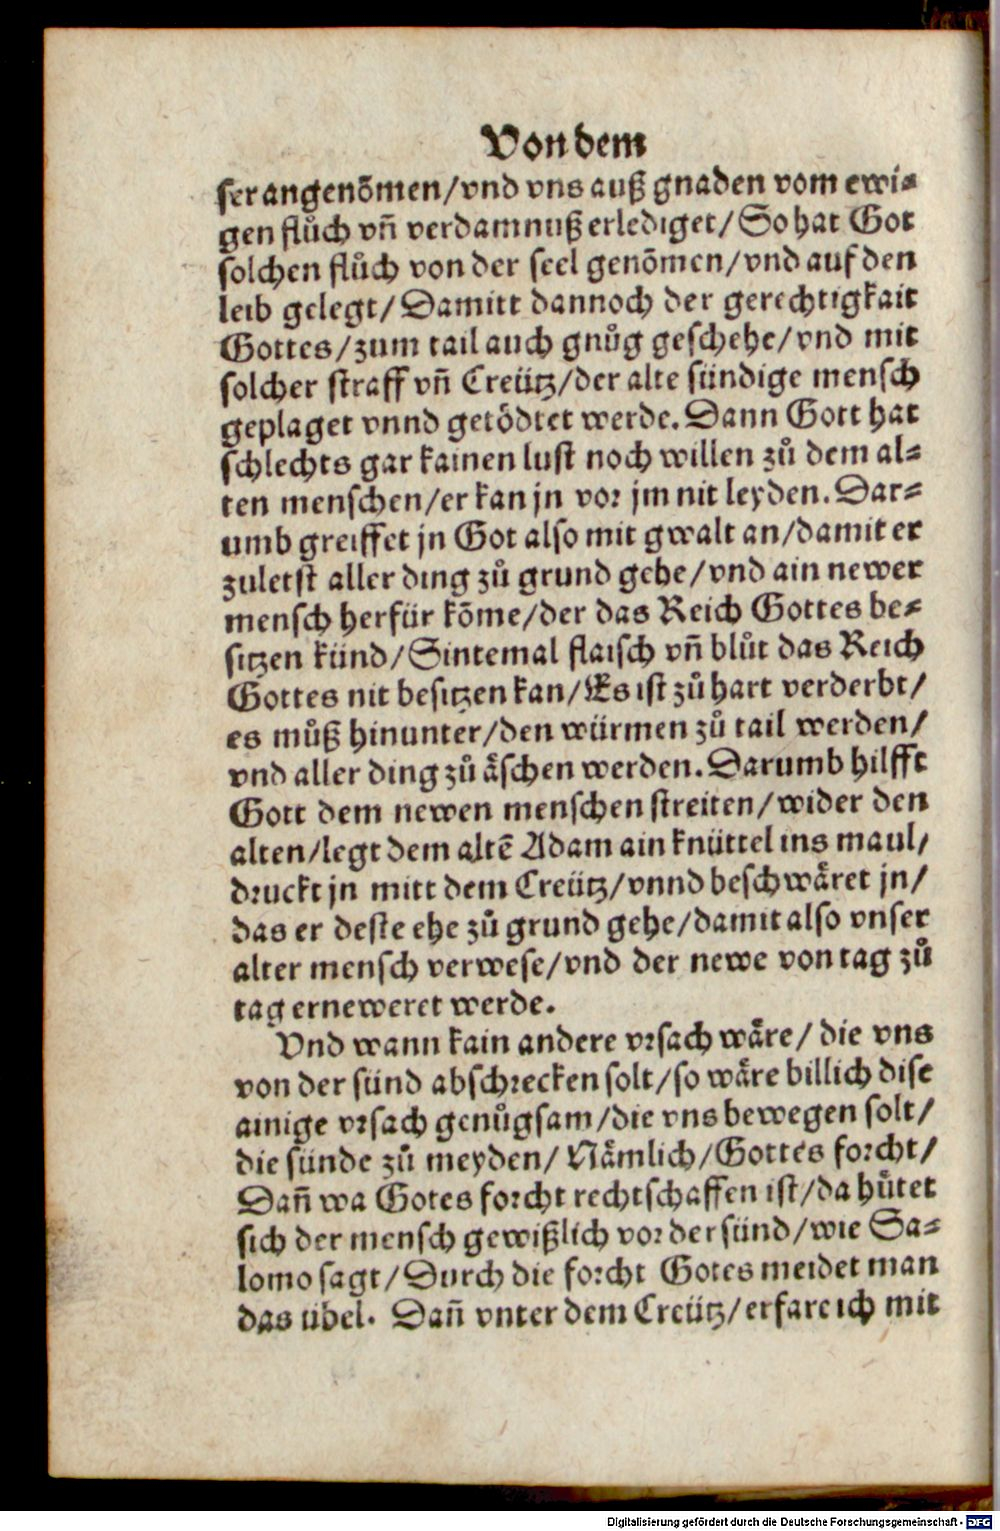 Von dem
ser angenõmen/vnd vns auß gnaden vom ewi⸗
gen flůch vñ verdamnuß erlediget/So hat Got
solchen flůch von der seel genõmen/vnd auf den
leib gelegt/Damitt dannoch der gerechtigkait
Gottes/zum tail auch gnůg geschehe/vnd mit
solcher straff vñ Creütz/der alte sündige mensch
geplaget vnnd getödtet werde. Dann Gott hat
schlechts gar kainen lust noch willen zů dem al⸗
ten menschen/er kan jn vor jm nit leyden. Dar⸗
umb greiffet jn Got also mit gwalt an/damit er
zuletst aller ding zů grund gehe/vnd ain newer
mensch herfür kõme/der das Reich Gottes be⸗
sitzen künd/Sintemal flaisch vñ blůt das Reich
Gottes nit besitzen kan/Es ist zů hart verderbt/
es můß hinunter/den würmen zů tail werden/
vnd aller ding zů äschen werden. Darumb hilfft
Gott dem newen menschen streiten/wider den
alten/legt dem altẽ Adam ain knüttel ins maul/
druckt jn mitt dem Creütz/vnnd beschwäret jn/
das er deste ehe zů grund gehe/damit also vnser
alter mensch verwese/vnd der newe von tag zů
tag erneweret werde.
Vnd wann kain andere vrsach wäre/ die vns
von der sünd abschrecken solt/so wäre billich dise
ainige vrsach genůgsam/die vns bewegen solt/
die sünde zů meyden/ Nämlich/Gottes forcht/
Dañ wa Gotes forcht rechtschaffen ist/da hůtet
sich der mensch gewißlich vor der sünd/wie Sa⸗
lomo sagt/Durch die forcht Gotes meidet man
das übel. Dañ vnter dem Creütz/erfare ich mit
Digitalisierung gefördert durch die Deutsche Forschungsgemeinschaft - DFG